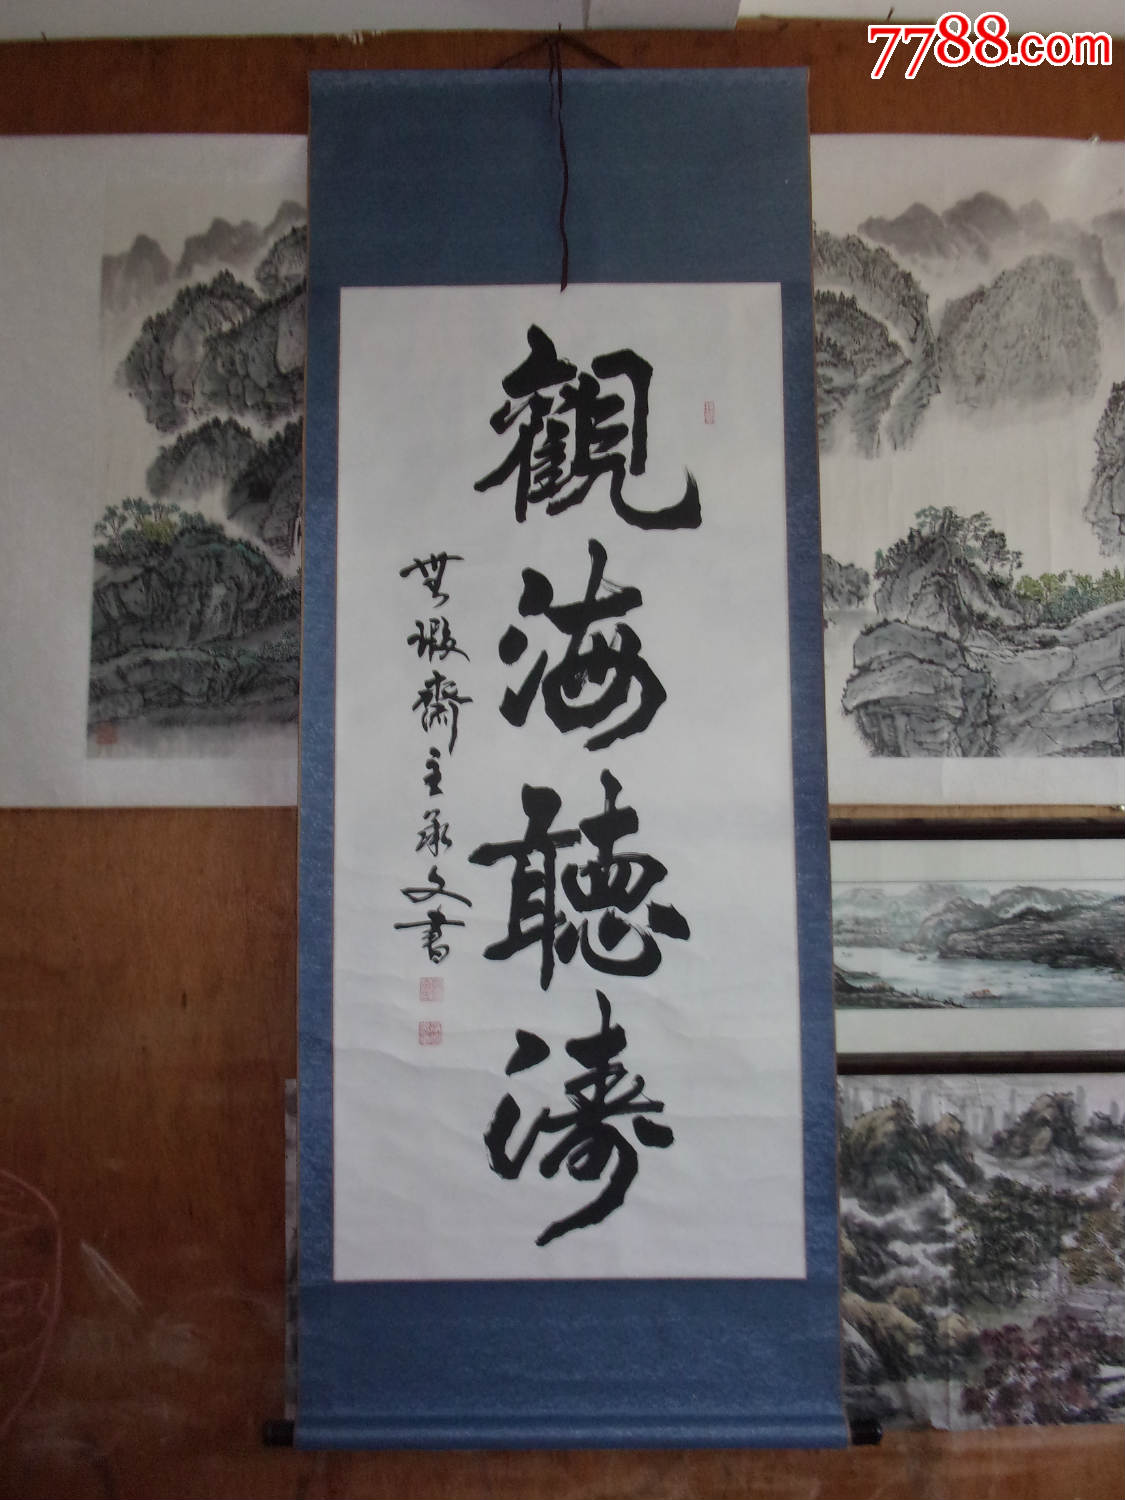 7788.com
觀海聽濤
無瑕齋主承文書